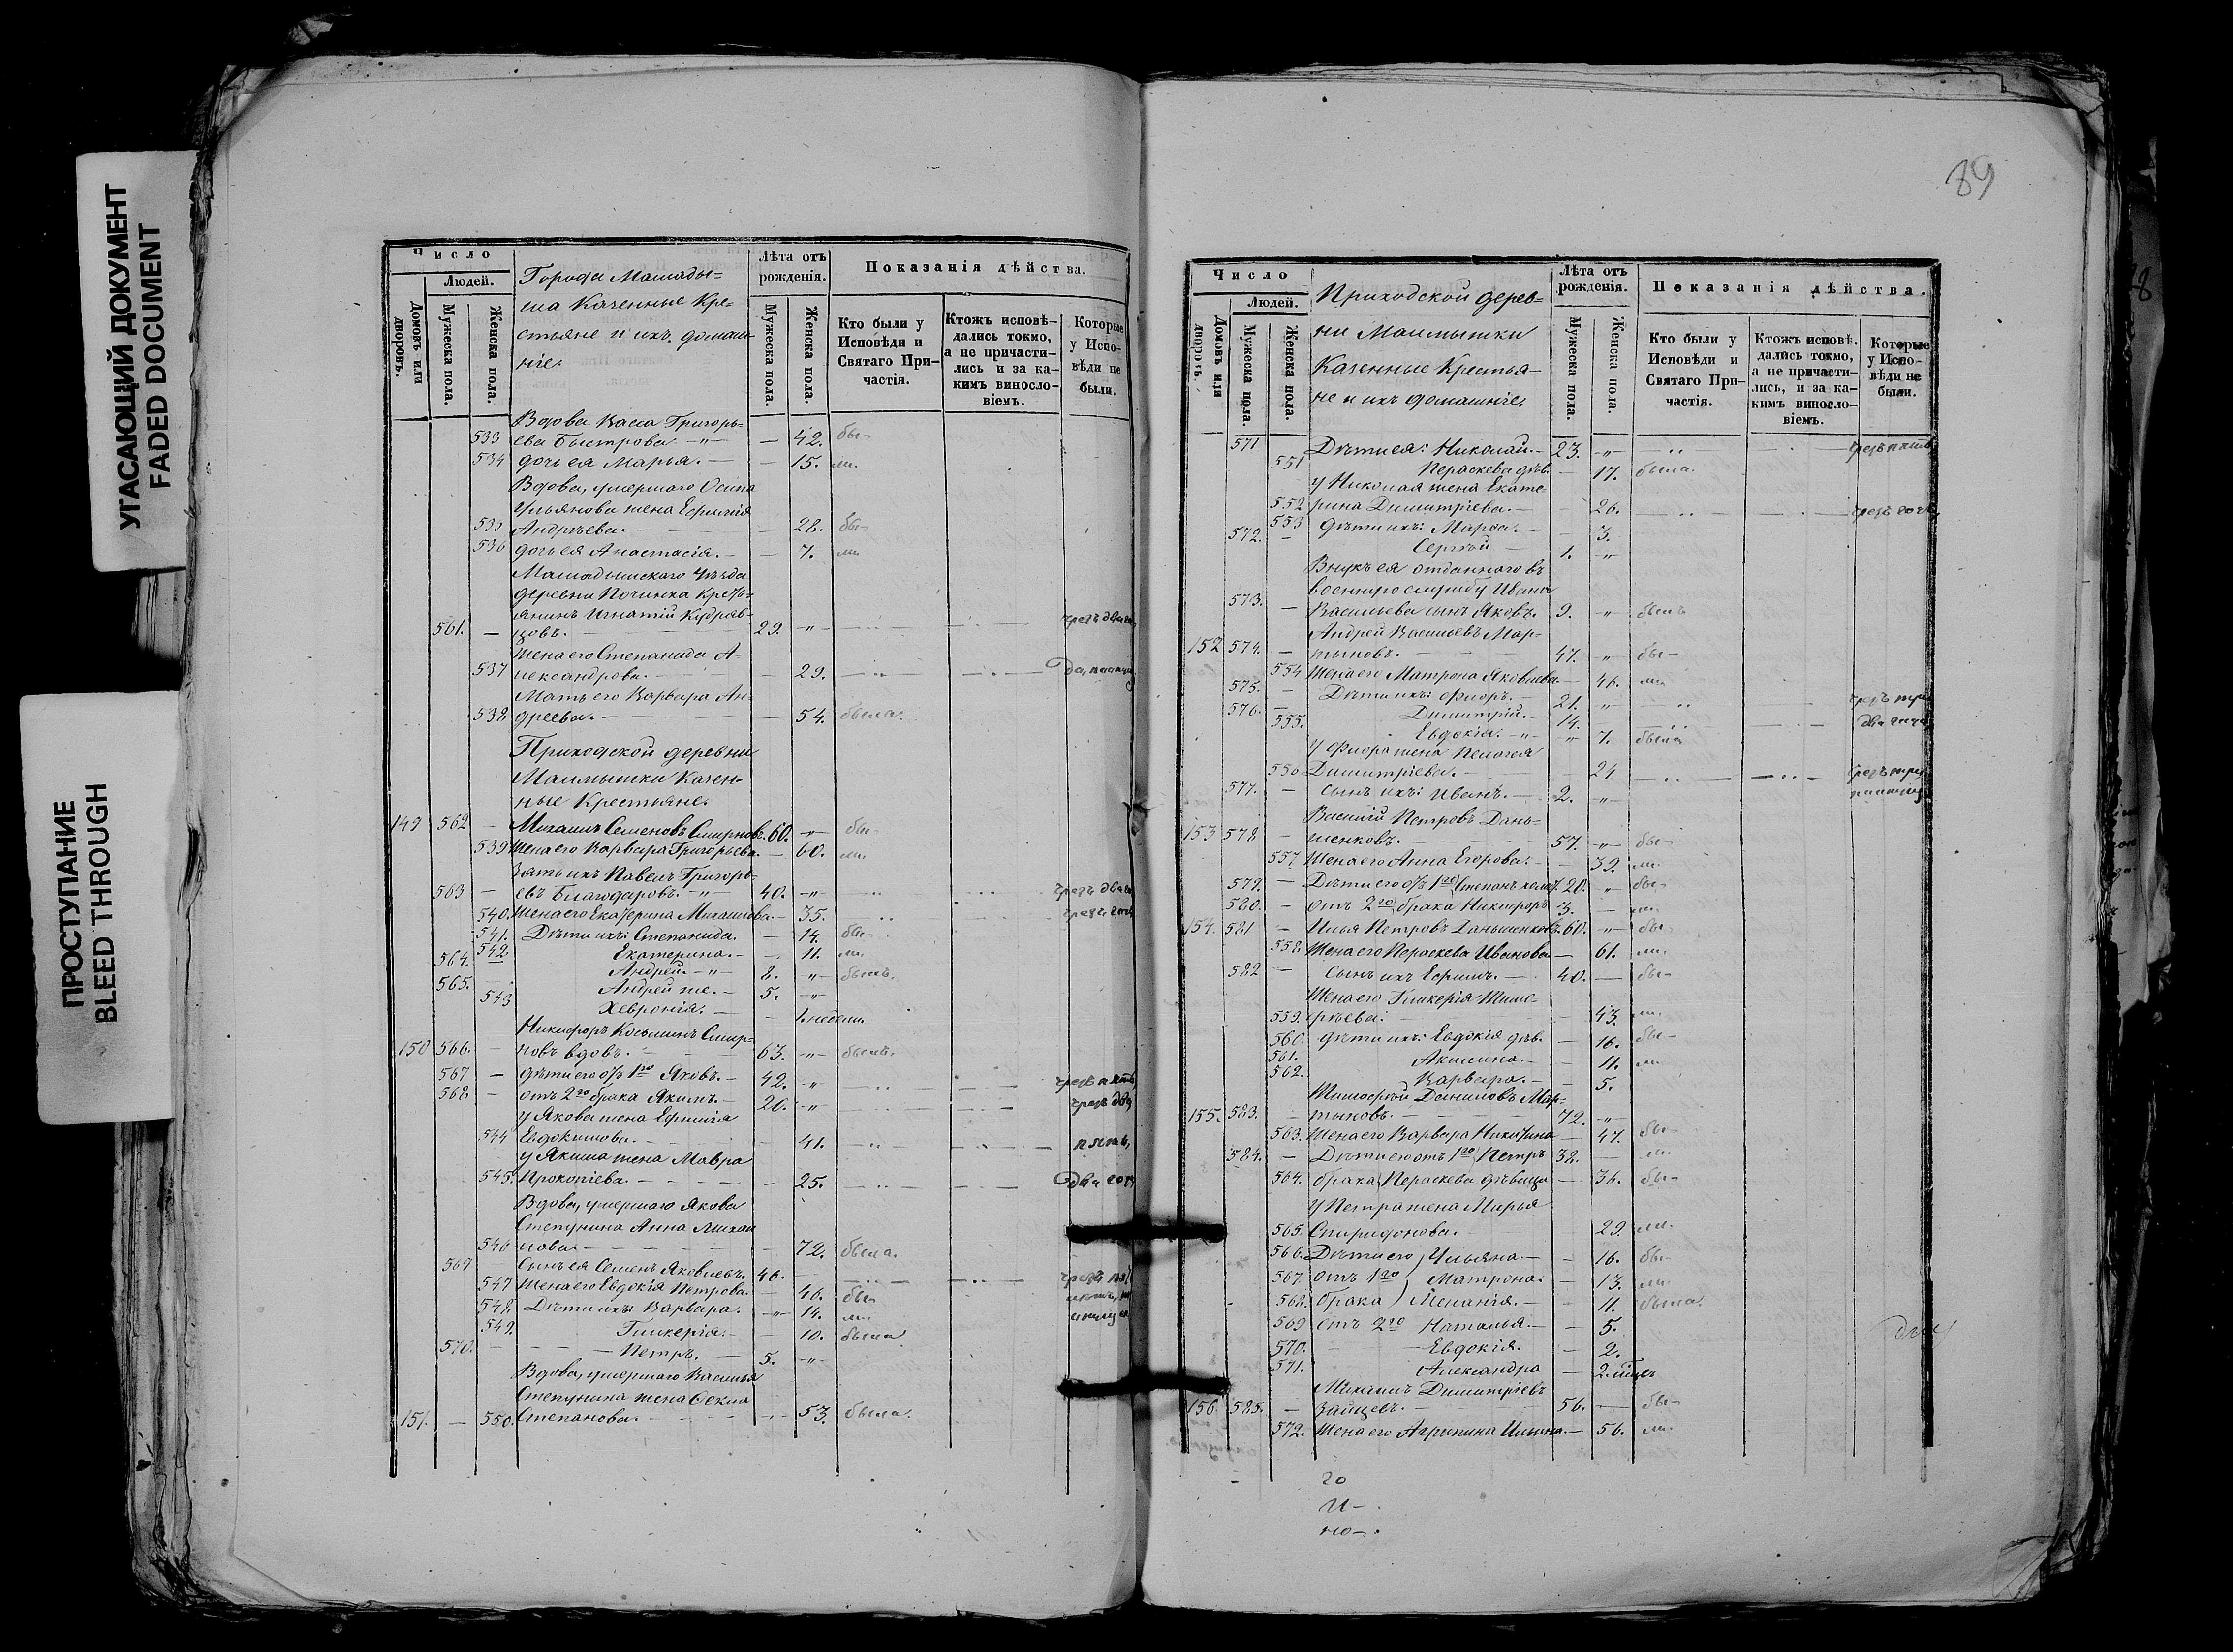 УГАСАЮЩИЙ ДОКУМЕНТ
FADED DOCUMENT
ПРОСТУПАНИЕ
BLEED THROUGH
Число
Людей.
Домовъ или дворовъ.
Мужеска пола.
Женска пола.
Города Мамады=
ша Казенные Кре=
стьяне и ихъ домаш
ніе.
Лѣта отъ рожденія.
Мужеска пола.
Женска пола.
Показанія дѣйства.
Кто были у Исповѣди и Святаго При-частія.
Ктожъ исповѣ-дались токмо, а не причасти-лись и за ка-кимъ винословіемъ.
Которые у Испо-вѣди не были.
Вдова Васса Григорь=
533 ева Быстрова — 42. бы-
534 дочь ея Марья. — 15. ли.
Вдова, умершаго Осипа
Ульянова жена Евфимія
535 Андреева. — 28. бы-
536 дочь ея Анастасія. — 7. ли
Мамадышскаго Уѣзда
деревни Починка кресть=
янинъ Игнатій Кудряв=
561. — цовъ. — 29. „ чрезъ два
Жена его Степанида А=
537 лександрова. — 29.
Мать его Варвара Ан=
538 дреева. — 54. была.
Приходской деревни
Маимышки Казен=
ные Крестьяне.
149 562 — Михаилъ Семеновъ Смирновъ. 60. „ бы-
539 Жена его Варвара Григорьева. — 60. ли.
Зять ихъ Павелъ Григорь=
563 — евъ Благодаровъ. — 40. „ чрезъ два
540. Жена его Екатерина Михаилова. — 35.
541. Дѣти ихъ: Степанида. — 14. бы-
542 Екатерина. — 11. ли.
564. Андрей. — 8. „ былъ.
565. Андрей же. — 5. „
543 Хевронія. — 1. недели
Никифоръ Косминъ Смир=
150 566. — новъ вдовъ. — 63. „ былъ.
567 — дѣти его отъ 1го Яковъ. — 42. „ чрезъ пять
568 — отъ 2го брака Якимъ. — 20. „ чрезъ два
У Якова жена Ефимія
544 Евдокимова. — 41. „ пять,
у Якима жена Мавра
545. Прокопіева. — 25. два года
Вдова, умершаго Якова
Степунина Анна Михаи
546 лова. — 72. была.
569 Сынъ ея Семенъ Яковлевъ. 46.
547 Жена его Евдокія Петрова. — 46. бы-
548. Дѣти ихъ: Варвара. — 14. ли.
549. Гликерія. — 10. была
570. Петръ. — 5. „
Вдова, умершаго Василья
Степунина жена Фекла
151. — 550. Степанова. — 53. была.
89
Число
Людей.
Домовъ или дворовъ.
Мужеска пола.
Женска пола.
Приходской дерев=
ни Маимышки
Казенные Крестья=
не и ихъ домашніе.
Лѣта отъ рожденія.
Мужеска пола.
Женска пола.
Показанія дѣйства.
Кто были у Исповѣди и Святаго При-частія.
Ктожъ исповѣ-дались токмо, а не причасти-лись, и за ка-кимъ винословіемъ.
Которые у Испо-вѣди не были.
571 Дѣти ея: Николай. — 23. „ чрезъ пять
551 Пераскева дѣв. — 17. была.
У Николая жена Екате=
552 рина Димитріева. — 26. чрезъ
553 дѣти ихъ: Марѳа. — 3.
572. — Сергѣй — 1. „
Внукъ ея отданнаго въ
военную службу Ивана
573. — Васильева сынъ Яковъ. 9. „ былъ
Андрей Васильевъ Мар=
152 574. — тыновъ. — 47. „ бы-
554 Жена его Матрона Яковлева. — 46. ли
575. — Дѣти ихъ: Флоръ. — 21. „ чрезъ три
576. — Димитрій. — 14. два года
555. Евдокія. — 7. была
У Флора жена Пелагея
556 Димитріева. — 24 чрезъ три
577. — сынъ ихъ: Иванъ. — 2. „
Василій Петровъ Дань=
153 578 — шенковъ. — 57. „ бы-
557 Жена его Анна Егорова. — 39. ли.
579. — Дѣти его отъ 1го Степанъ холост. 20. „ бы-
580. — отъ 2го брака Никифоръ 3. — ли.
154. 581 — Илья Петровъ Даньшенковъ. 60. „ бы-
558 Жена его Пераскева Иванова — 61. ли.
582 — сынъ ихъ Ефимъ. — 40. — бы-
Жена его Гликерія Тимо=
559. ѳѣева. — 43. ли.
560. дѣти ихъ: Евдокія дѣв. — 16. бы-
561. Акилина. — 11. ли
562. Варвара. — 5.
Тимоѳей Даниловъ Мар=
155. 583. — тыновъ. — 72. „
563. Жена его Варвара Никитина — 47. бы-
584. — Дѣти его отъ 1го Петръ 38. — ли.
564. брака Пераскева дѣвица — 36. бы-
У Петра жена Марья
565. Спиридонова. — 29. ли.
566. Дѣти его Ульяна. — 16. бы-
567. отъ 1го Матрона. — 13. ли.
568. брака Меланія. — 11. была.
569 отъ 2го Наталья. — 5.
570. Евдокія. — 2.
571. Александра — 2. мѣс
Михаилъ Димитріевъ
156. 585. — Зайцевъ. — 56. — бы-
572. Жена его Агрипина Ильина. — 56. ли.
го
и-
но-